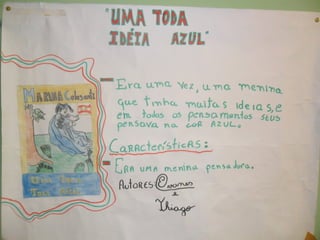 "UMA TODA
IDÉIA AZUL"
MARINA Colasanti
Uma Ideia
Toda Azul
Era uma vez, uma menina
que tinha muitas ideias, e
em todos os pensamentos seus
pensava na cor azul.
Características:
Era uma menina pensadora.
Autores:
e
Thiago